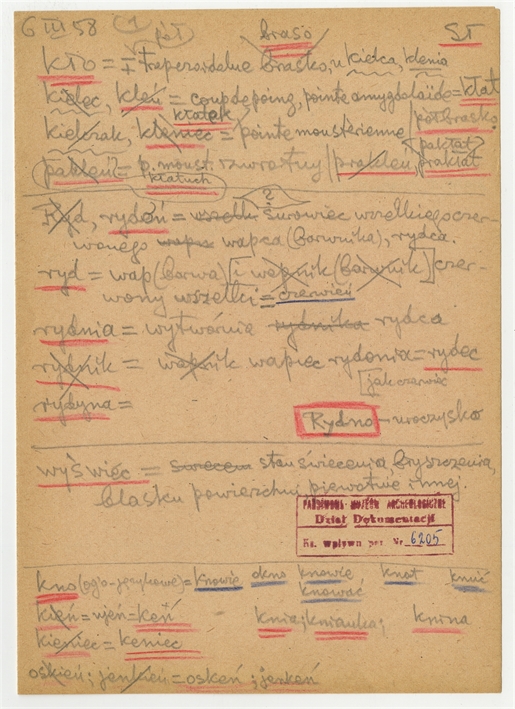 6 III 58 1 pół braso ST
kło = ∓ trapezoidalne brasko, u kielca, klenia
kielec, kleń = coup de poing, pointe amygdaloïde = kłat
kłatek półbrasko
kielczak, kleniec = pointe moustérienne pakłat
pakleń = p. moust. rozwrostny prakleń, prakłat
kłatuch
Ryd, rydoń = wszelki surowiec wszelkiego czer-
wonego wapca (barwnika), rydca.
ryd = wap (barwa) [i wapnik (barwnik)] czer-
wony wszelki = czerwień
rydnia = wytwórnia rydnika rydca
rydnik = wapnik wapiec rydonia = rydec
[jak czerwiec
rydyna =
Rydno - uroczysko
wyświec = świecenia stan świecenia błyszczenia,
blasku powierzchni pierwotnie innej.
PAŃSTWOWE MUZEUM ARCHEOLOGICZNE
Dział Dokumentacji
Ks. wpływu poz. Nr 6205
kno (ogo-językowe) = knowie okno knowie knot knuć
knować
kień = ujeń = keń knia; kniauka; knina
kieniec = keniec
oskień; jenkień = oskeń; jenkeń